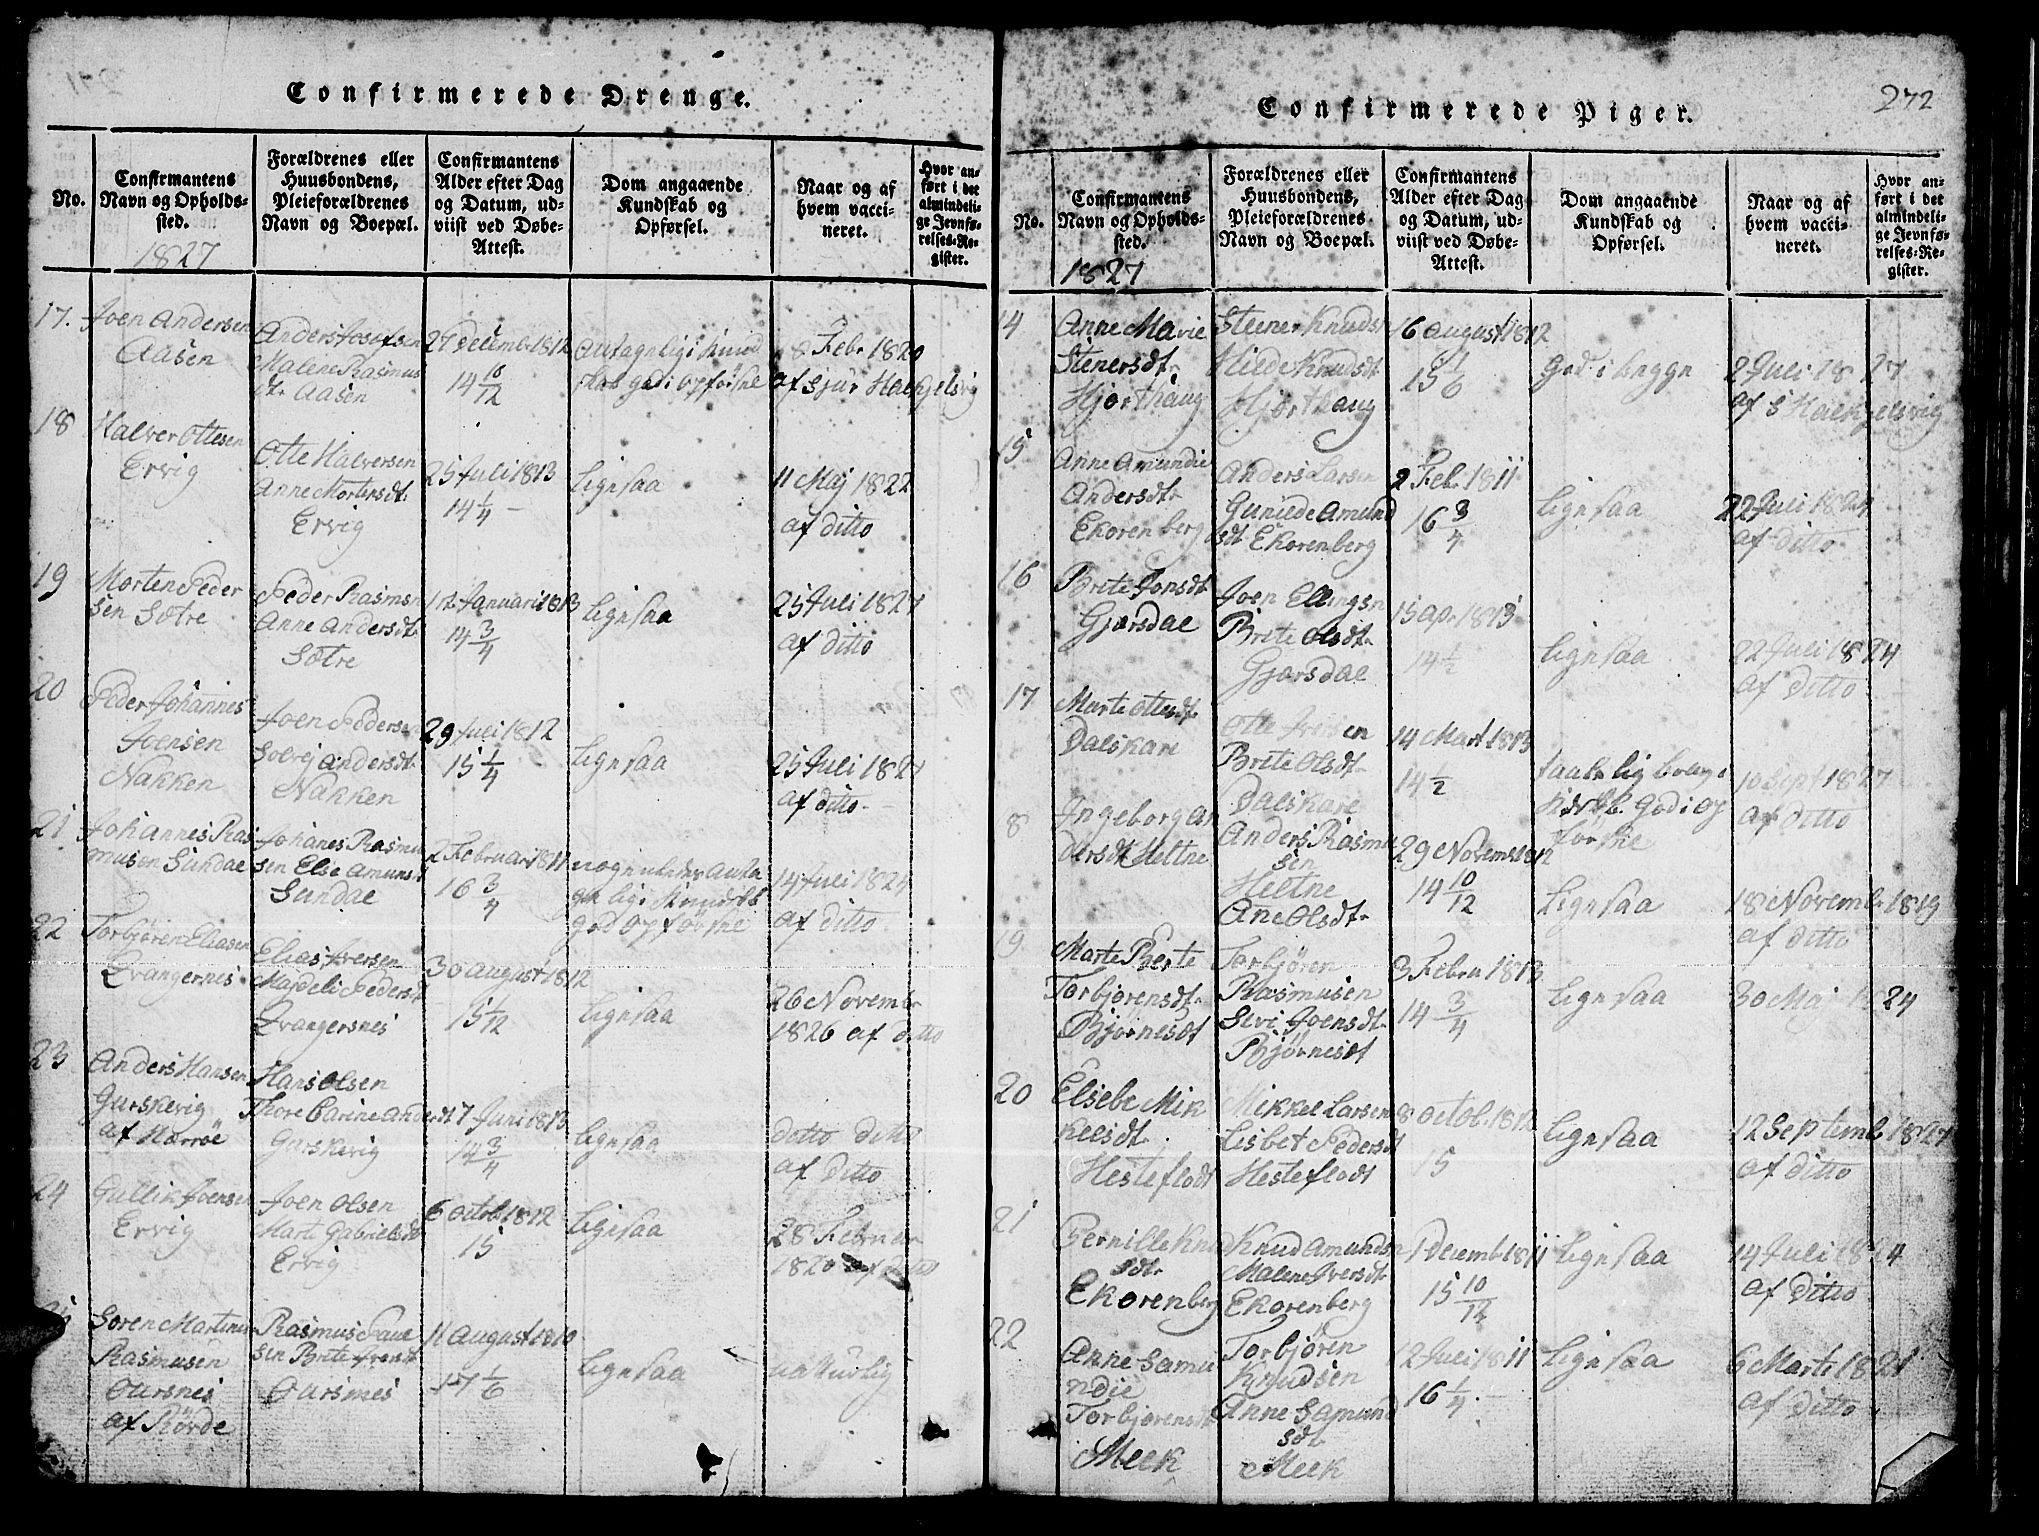 Confirmerede Drenge.
No.
Confirmantens
Navn og Opholds-
sted.
1827
Forældrenes eller
Huusbondens,
Pleieforældrenes
Navn og Boepæl.
Confirmantens
Alder efter Dag
og Datum, ud-
viist ved Døbe-
Attest.
Dom angaaende
Kundskab og
Opførsel.
Naar og af
hvem vacci-
neret.
Hvor an-
ført i det
almindeli-
ge Jevnfø-
relses-Re-
gister.
17.
Joen Andersen
Aasen
Anders Josefsen
Malene Rasmus
dtr Aasen
27 Decemb 1812
14 10/12
Antagelig i kund
skab god i opførsel
8 Febr 1820
af Sjur Halkjelsvig
18
Halver Ottesen
Ervig
Otte Halversen
Anne Mortensdt
Ervig
25 Juli 1813
14 1/4
Lignsaa
11 Maj 1822
af ditto
19
Morten Peder
sen Sætre
Peder Rasmsn
Anne Andersdt
Sætre
12 Januari 1813
14 3/4
Lignsaa
25 Juli 1827
af ditto
20
Peder Johannes
Joensen
Nakken
Joen Pedersen
Solvej Andersdt
Nakken
29 Juli 1812
15 1/4
Lignsaa
25 Juli 1827
af ditto
21
Johannes Ras
musen Sundal
Johanes Rasmu
sen Else Amunsd
Sundal
2 Februar 1811
16 3/4
nogenleder anta
gelig i Kundskb
god opførsel
14 Juli 1824
af ditto
22
Torbjøren Eliasen
Qvangernes
Elias Iversen
Mardeli Pedersdt
Qvangersnes
30 August 1812
15 1/12
Lignsaa
26 Novemb
1826 af ditto
23
Anders Hansen
Gurskevig
af Harröe
Hans Olsen
Thore Carine Anderdt
Gurskevig
17 Juni 1813
14 3/4
Lignsaa
ditto ditto
af ditto
24
Gullik Joensen
Ervig
Joen Olsen
Marte Gabrielsdt
Ervig
6 Octob 1812
15
Lignsaa
28 Februar
1820 af ditto
Soren Martinus
Rasmusen
Oursnes
af Rövde
Rasmus Paul
sen Brite Iversdt
Oursnes
11 August 1810
17 1/6
Lignsaa
naturlig
Confirmerede Piger.
272
No.
Confirmantens
Navn og Opholds-
sted.
1827
Forældrenes eller
Huusbondens,
Pleieforældrenes
Navn og Boepæl.
Confirmantens
Alder efter Dag
og Datum, ud-
viist ved Døbe-
Attest.
Dom angaaende
Kundskab og
Opførsel.
Naar og af
hvem vacci-
neret.
Hvor an-
ført i det
almindeli-
ge Jevnfø-
relses-Re-
gister.
14
Anne Marie
Stenersdt
Hjorthaug
Steener Knuds
Hilde Knudsdt
Hjorthaug
16 August 1812
15 1/6
God i begge
2 Juli 1827
af S Halkjelsvig
15
Anne Amundie
Andersdt
Ekorenberg
Anders Larsen
Gunilde Amund
sdt Ekorenberg
2 Feb. 1811
16 3/4
Lignsaa
22 Juli 1824
af ditto
16
Brite Jonsdt
Gjørsdal
Joen Ellingsn
Brite Olsdt
Gjørsdal
15 apr 1813
14 1/2
Lignsaa
22 Juli 1824
af ditto
17
Marte Ottesdt
Dalskare
Otte Iversen
Brite Olsdt
Dalskare
14 Mart 1813
14 1/2
God i op
førsle
10 Sept 1827
af ditto
8
Ingeborg An
dersdt Heltne
Anders Rasmu
sen
Heltne
Ane Olsdt
29 Novemb 1812
14 10/12
Lignsaa
18 Novemb 1819
af ditto
19
Marte Berte
Torbjørensdt
Bjørnesdt
Torbjören
Rasmusen
Seri Joensdt
Bjørnesdt
3 Febru 1813
14 3/4
Lignsaa
30 Maj 1824
20
Elsebe Mik
kelsdt
Hesteflodt
Mikkel Larsen
Lisbet Pedersdt
Hesteflodt
8 Octob. 1812
15
Lignsaa
12 Septemb 1827
af ditto
21
Pernille Knu
sdt
Ekorenberg
Knud Amundsn
Malene Iversdt
Ekorenberg
1 Decemb 1811
15 10/12
Lignsaa
14 Juli 1824
af ditto
22
Anne Samu
ndie
Torbjørensdt
Meek
Torbjören
Knudsen
Anne Samund
sdt
Meek
12 Juli 1811
16 1/4
Lignsaa
6 Marts 1821
af ditto